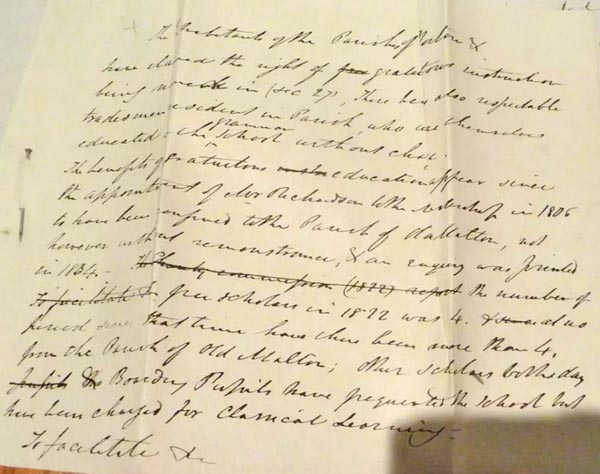 The Inhabitants of the Parish of Norton &
have claimed the right of free gratuitous instruction
being made in (sec 27), There has also respectable
tradesmen resident in Parish, who were themselves
grammar
educated in the School without charge.
The benefits of gratuitous education appear since
the appointment of Mr Richardson to the mastership in 1806
to have been confined to the Parish of Old Malton, not
however without remonstrance, & an enquiry was printed
in 1834. - To The by commission (1822) report the number of
To facilitate &c free scholars in 1822 was 4. & since at no
period since that time have there been more than 4,
from the Parish of Old Malton; other scholars both day
pupils The Boarders Pupils have frequented the School but
have been charged for Classical Learning. -
To facilitate &c